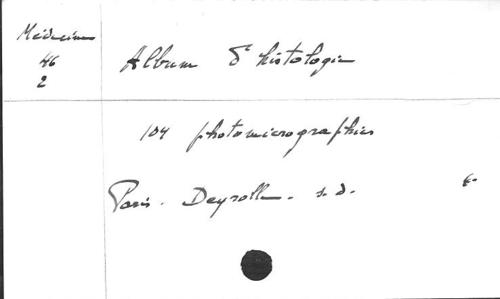 Médecine
46
2
Album d'histologie
104 photomicrographies
Paris. Deyrolle. s.d.